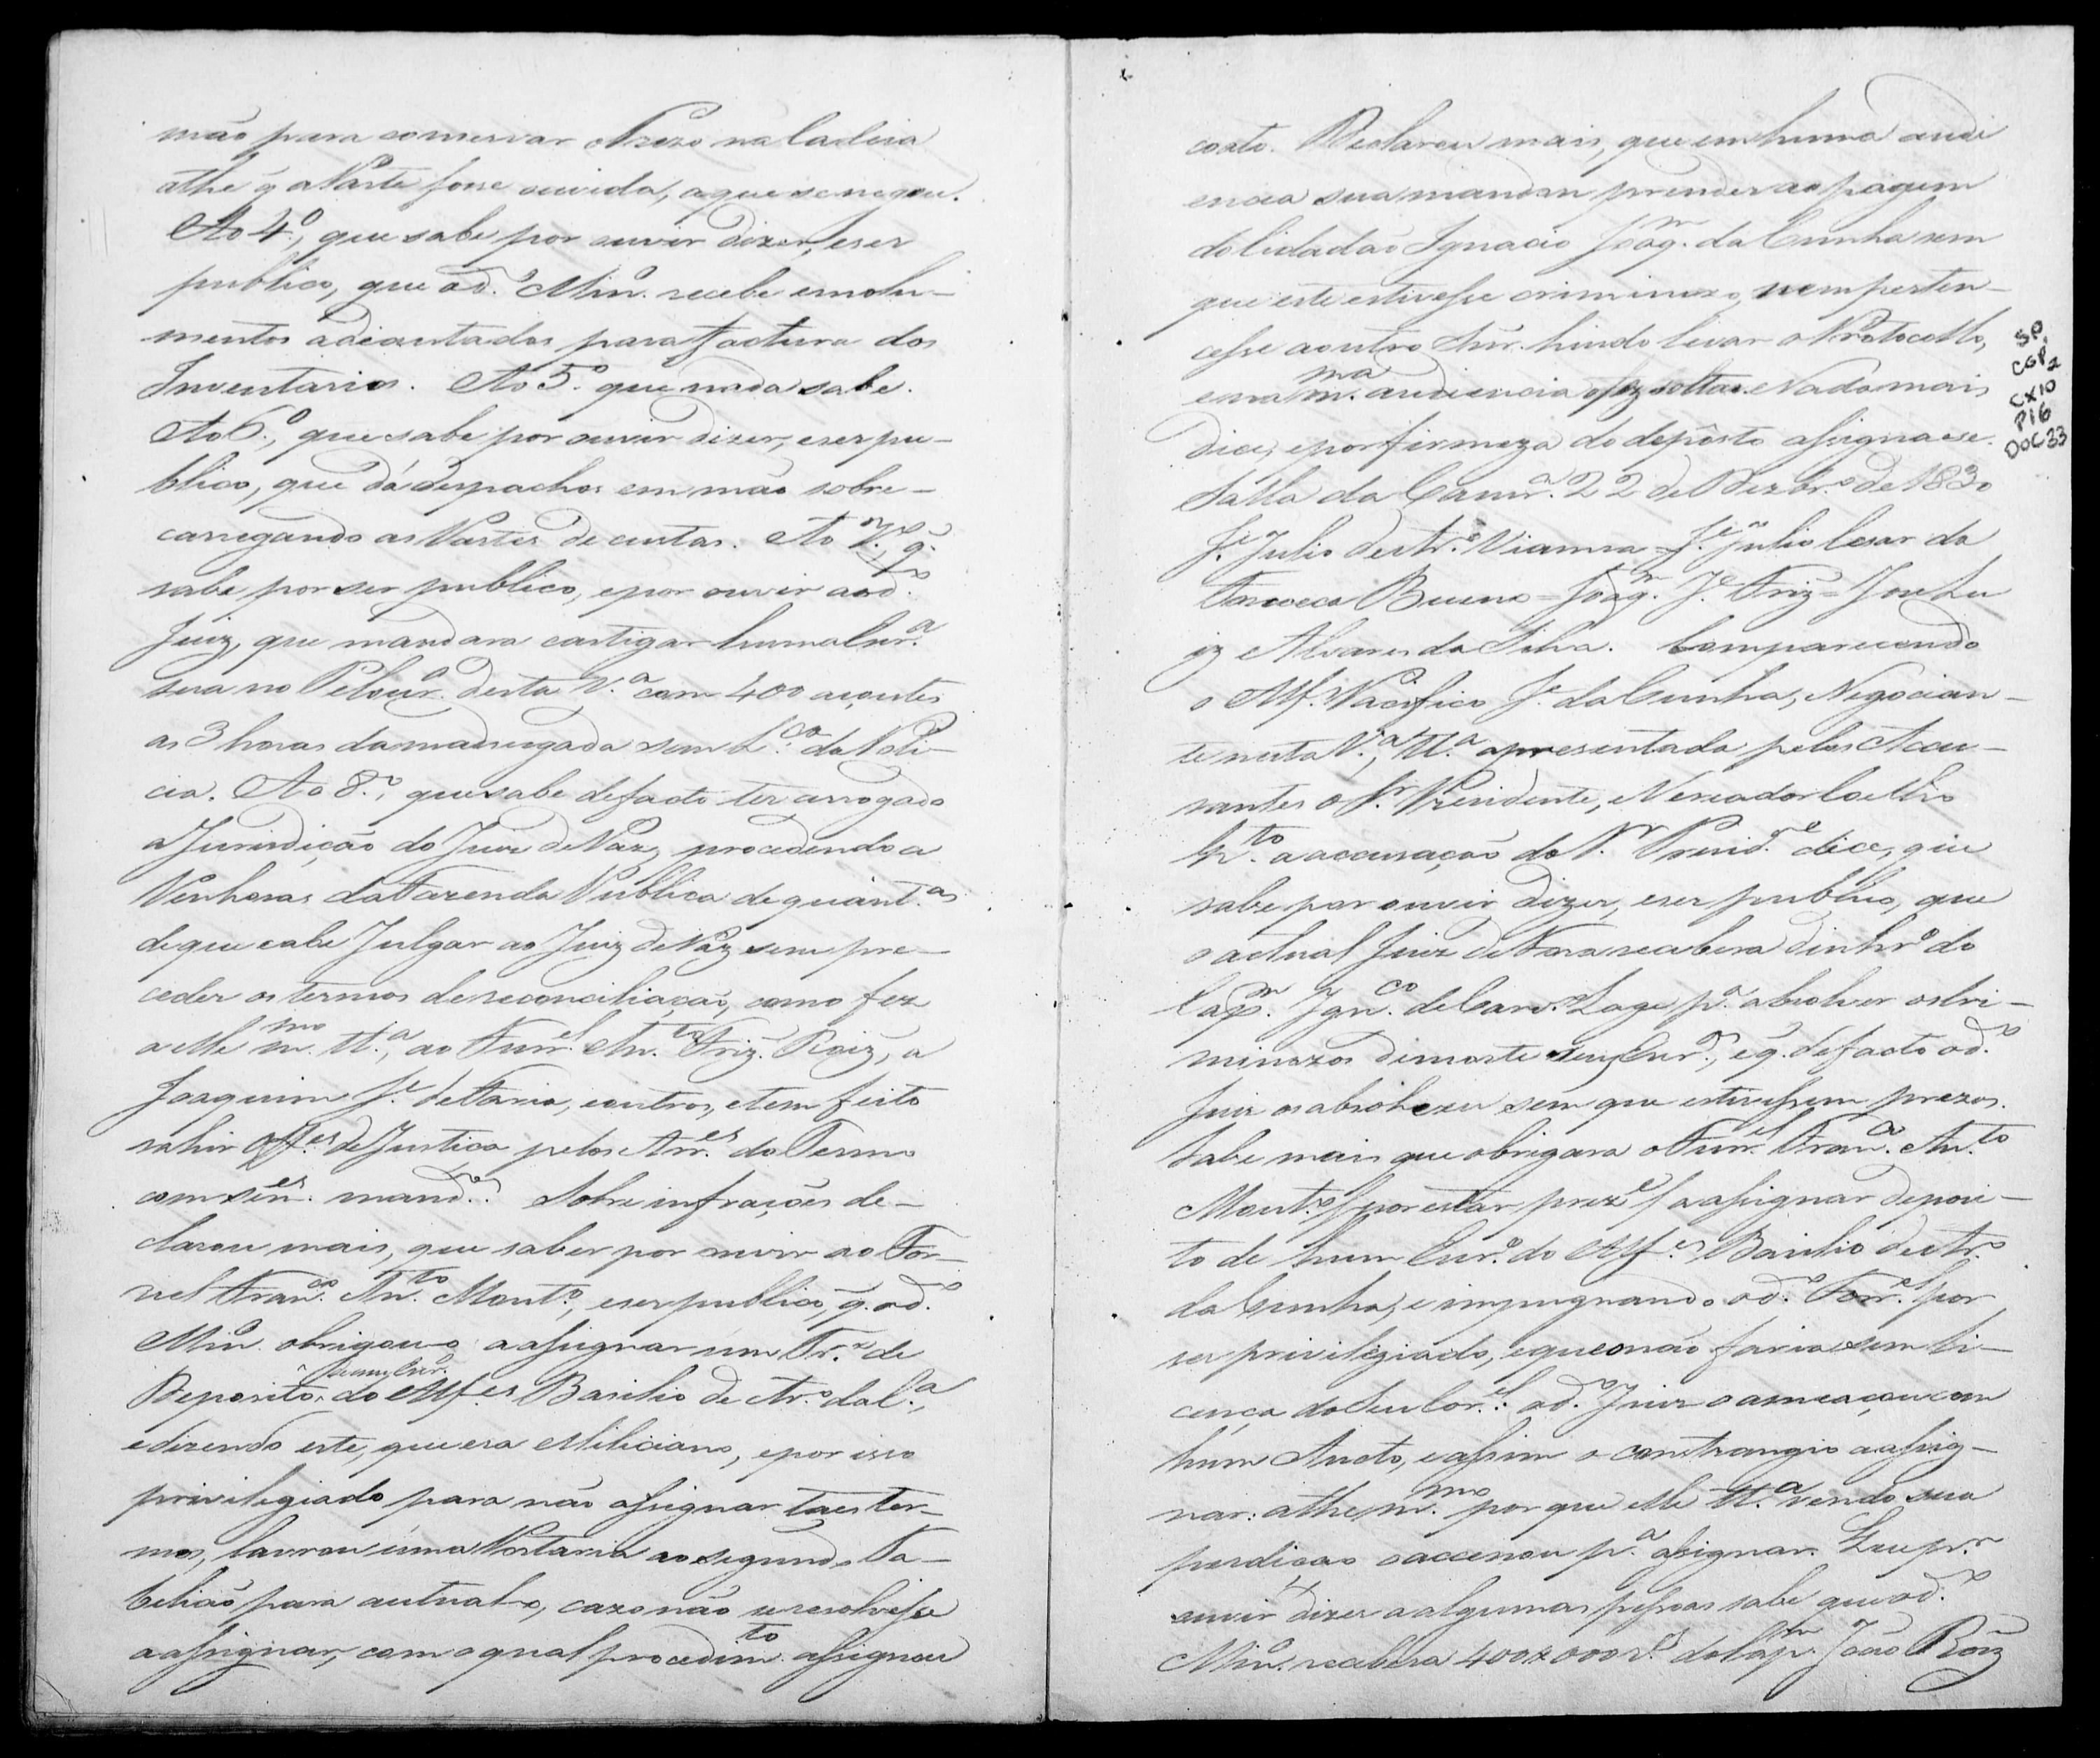 mão para conservar o Prezo na Cadeia
athe q̃ a Parte fosse ouvida, a que se negou.
Ao 4.º, que sabe por ouvir dizer, e ser
publico, que o d.º Min.º recebe emolu-
mentos adiantados para factura dos
Inventarios. Ao 5.º que nada sabe.
Ao 6.º, que sabe por ouvir dizer, e ser pu-
blico, que dá despachos em mão sobre-
carregando as Partes de custas. Ao 7.º, q̃.
sabe por ser publico, e por ouvir ao d.º
Juiz, que mandara castigar huma Escr.ª
sua no Pelour.º desta V.ª com 400 açoutes
as 3 horas da madrugada sem L.ça da Poli-
cia. Ao 8.º, que sabe de facto ter arrogado
a Jurisdição do Juiz de Paz, procedendo a
Penhoras da Fazenda Publica de quant.as
de que cabe Julgar ao Juiz de Paz sem pre-
ceder os termos de reconciliação, como fez
a elle m.mo tt.ª, ao Furr.el An.to Friz. Roiz, a
Joaquim J.e de Faria, e outros, e tem feito
sahir Off.es de Justiça pelos Arr.es do Termo
com seus mand.os. Sobre infrações de-
clarou mais, que saber por ouvir ao For-
riel Fran.co An.to Mont.º, e ser publico, q̃. o d.º
Min.º obrigou-o a assignar um Tr.º de
Deposito, de hum Escr.º do Alf.es Basilio de Ar.º da C.ª,
e dizendo este, que era Miliciano, e por isso
privilegiado para não assignar taes ter-
mos, lavrou uma Portaria ao segundo Ta-
belião para autual-o, cazo não se resolvesse
a assignar, com o qual procedim.to assignou
coato. Declarou mais, que em huma audi
encia sua mandou prender ao pagem
do Cidadão Ignacio Joaq.m da Cunha sem
que este estivesse criminozo, nem perten-
cesse a outro Snr. hindo levar o Protocollo,
e na m.ma audiencia o fez soltar. Nada mais
dice, e por firmeza do deposto assigna-se.
Salla da Camr.ª 22 de Dezbr.º de 1830
J.e Julio de Ar.º Vianna = J.e Julio Cesar da
Fonceca Bueno = Joaq.m J.e Friz = Joze Lu
iz Alvares da Silva. Comparecendo
o Alf.es Pacifico J.e da Cunha, Negocian-
te nesta V.ª, tt.ª apresentada pelos Accu-
santes o S.r Prezidente, e Vereador Coelho
q.to a accusação do S.r Presid.e dice, que
sabe por ouvir dizer, e ser publico, que
o actual Juiz de Fora recebera dinhr.º do
Cap.m Ign.co de Carv.º Lage p.ª absolver os cri-
minozos de morte seus Escr.os, e q̃. de facto o d.º
Juiz os absolvera sem que estivessem prezos.
Sabe mais que obrigara o Furr.el Fran.co An.to
Mont.º (por estar prez.e) a assignar deposi-
to de hum Escr.º do Alf.es Basilio de Ar.º
da Cunha, e impugnando o d.º Forr.el por
ser privilegiado, e que o não faria sem li-
cença do Seu Cor.el: o d.º Juiz o ameaçou com
hum Aucto, e assim o constrangio a assig-
nar: athe m.mo por que elle tt.ª vendo sua
perdição o accenou p.ª assignar. Que p.r
ouvir dizer a algumas pessoas sabe que o d.º
Min.º recebera 400$000 r.s do Cap.m João Roiz
SP,
CGP2
CX10
P16
DOC33